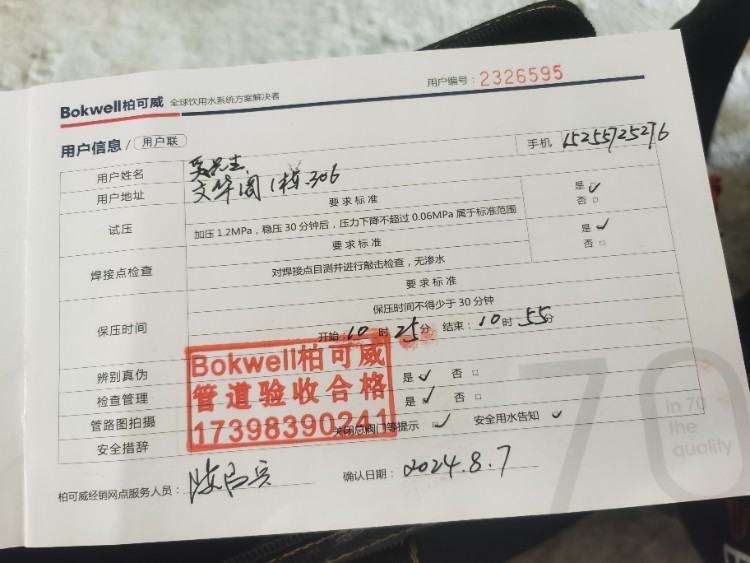 Bokwell柏可威 全球饮用水系统方案解决者
用户编号：2326595
用户信息 / 用户联
用户姓名 吴先生 手机 15255725276
用户地址 文华阁1栋.306
试压 要求标准 是 ✓
加压1.2MPa，稳压30分钟后，压力下降不超过0.06MPa属于标准范围 否 □
焊接点检查 要求标准 是 ✓
对焊接点目测并进行敲击检查，无渗水 否 □
保压时间 要求标准
保压时间不得少于30分钟
开始 10 时 25 分 结束：10 时 55 分
辨别真伪
检查管理 是 ✓ 否 □
管路图拍摄 是 ✓ 否 □
安全措辞 关闭总阀门等提示 ✓ 安全用水告知 ✓
Bokwell柏可威
管道验收合格
17398390241
柏可威经销网点服务人员：
确认日期：2024.8.7
70
in 70
the
quality